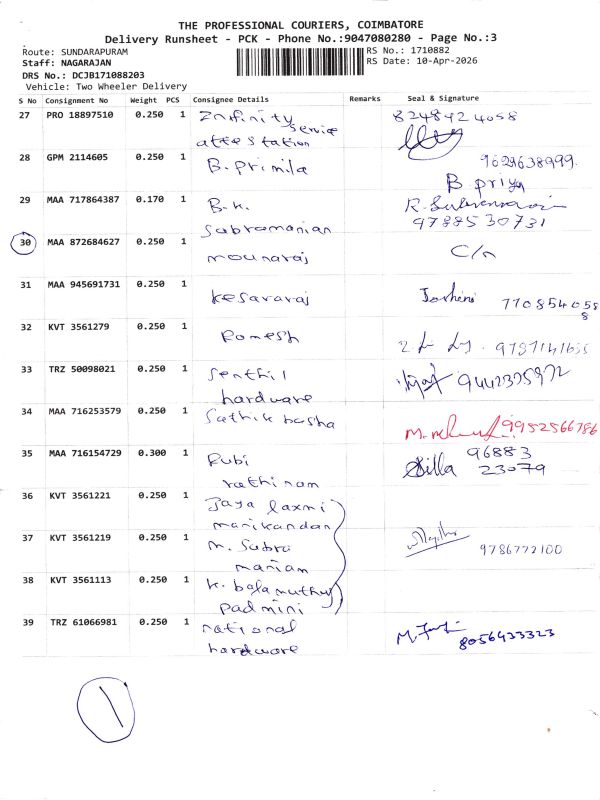 THE PROFESSIONAL COURIERS, COIMBATORE
Delivery Runsheet - PCK - Phone No.:9047080280 - Page No.:3
Route: SUNDARAPURAM
RS No.: 1710882
Staff: NAGARAJAN
RS Date: 10-Apr-2026
DRS No.: DCJB171088203
Vehicle: Two Wheeler Delivery
S No Consignment No Weight PCS Consignee Details Remarks Seal & Signature
27 PRO 18897510 0.250 1 Infinity service 8248424058
attestation
28 GPM 2114605 0.250 1 B. primila 9629638999
B priya
29 MAA 717864387 0.170 1 B.K. R.
Subramanian 9788530731
30 MAA 872684627 0.250 1 mounaraj C/n
31 MAA 945691731 0.250 1 Kesavaraj 7708540588
32 KVT 3561279 0.250 1 Ramesh 9787141635
33 TRZ 50098021 0.250 1 Senthil 9442375972
hardware
34 MAA 716253579 0.250 1 Sathik basha 9952566786
35 MAA 716154729 0.300 1 Rubi 96883
rathinam 23079
36 KVT 3561221 0.250 1 Jaya laxmi
manikandan
37 KVT 3561219 0.250 1 M. Subra 9786772100
maniam
38 KVT 3561113 0.250 1 K. balamuthu
padmini
39 TRZ 61066981 0.250 1 national 8056433323
hardware
1